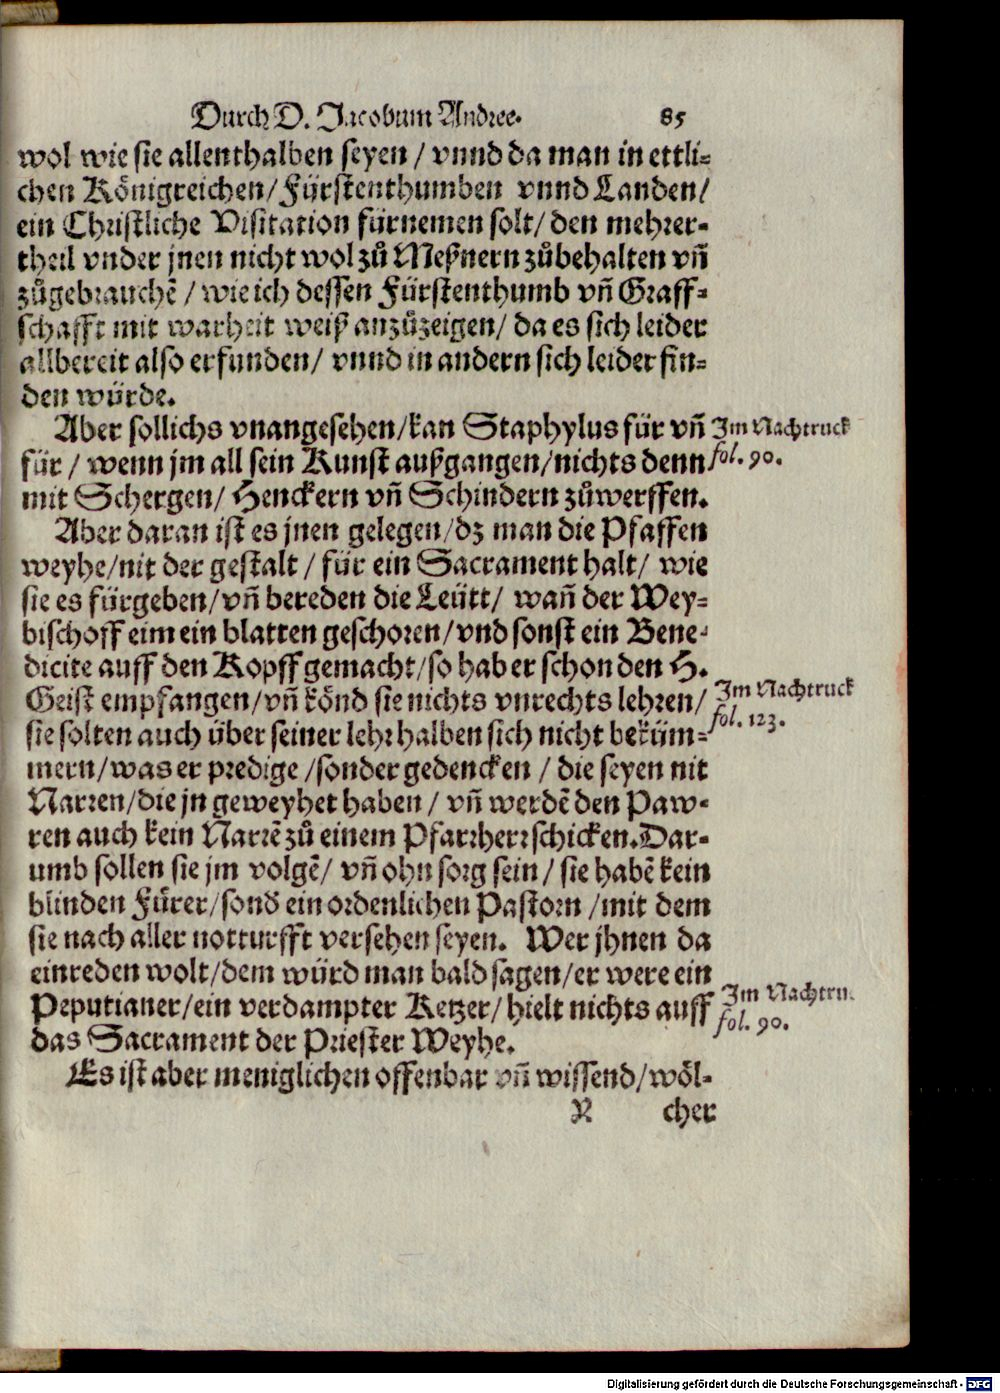 Durch D. Jacobum Andree. 85
wol wie sie allenthalben seyen / vnnd da man in ettli⸗
chen Königreichen / Fürstenthumben vnnd Landen /
ein Christliche Visitation fürnemen solt / den mehrer⸗
theil vnder jnen nicht wol zů Meßnern zůbehalten vñ
zůgebrauchẽ / wie ich dessen Fürstenthumb vñ Graff⸗
schafft mit warheit weiß anzůzeigen / da es sich leider
allbereit also erfunden / vnnd in andern sich leider fin⸗
den würde.
Aber sollichs vnangesehen / kan Staphylus für vñ
für / wenn jm all sein Kunst außgangen / nichts denn
mit Schergen / Henckern vñ Schindern zůwerffen.
Im Nachtruck
fol. 90.
Aber daran ist es jnen gelegen / dz man die Pfaffen
weyhe / nit der gestalt / für ein Sacrament halt / wie
sie es fürgeben / vñ bereden die Leütt / wañ der Wey⸗
bischoff eim ein blatten geschoren / vnd sonst ein Bene⸗
dicite auff den Kopff gemacht / so hab er schon den H.
Geist empfangen / vñ könd sie nichts vnrechts lehren /
sie solten auch über seiner lehr halben sich nicht beküm⸗
mern / was er predige / sonder gedencken / die seyen nit
Narren / die jn geweyhet haben / vñ werdẽ den Paw⸗
ren auch kein Narrẽ zů einem Pfarrherr schicken. Dar⸗
umb sollen sie jm volgẽ / vñ ohn sorg sein / sie habẽ kein
blinden Fürer / sonď ein ordenlichen Pastorn / mit dem
sie nach aller notturfft versehen seyen. Wer jhnen da
einreden wolt / dem würd man bald sagen / er were ein
Peputianer / ein verdampter Ketzer / hielt nichts auff
das Sacrament der Priester Weyhe.
Im Nachtruck
fol. 123.
Im Nachtru
fol. 90.
Es ist aber meniglichen offenbar vñ wissend / wöl⸗
cher
Digitalisierung gefördert durch die Deutsche Forschungsgemeinschaft - DFG